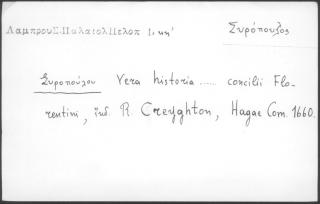 Λαμπρου Σ. Παλαιολ Πελοπ 1, κη'
Συρόπουλος
Συροπούλου Vera historia ...... concilii Flo-
rentini, ἐκδ. R. Creyghton, Hagae Com. 1660.